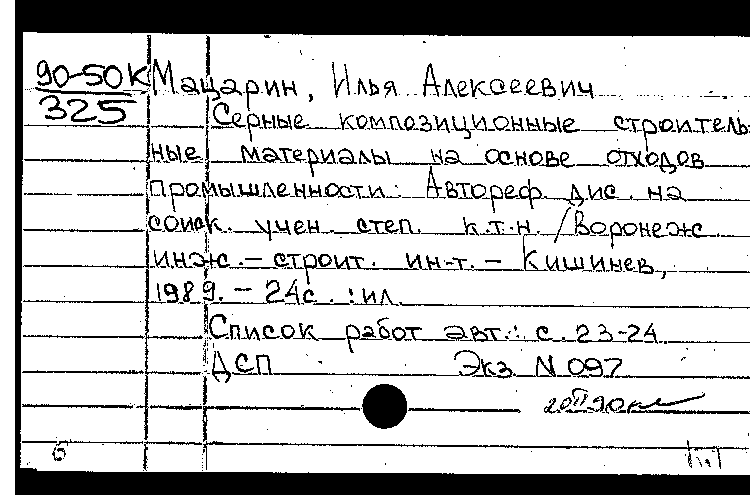 90-50К Мацарин, Илья Алексеевич
325 Серные композиционные строитель-
ные материалы на основе отходов
промышленности: Автореф. дис. на
соиск. учен. степ. к.т.н. /Воронеж.
инж.-строит. ин-т. - Кишинев,
1989. - 24с. : ил.
Список работ авт.: с. 23-24.
ДСП Экз N 097
6